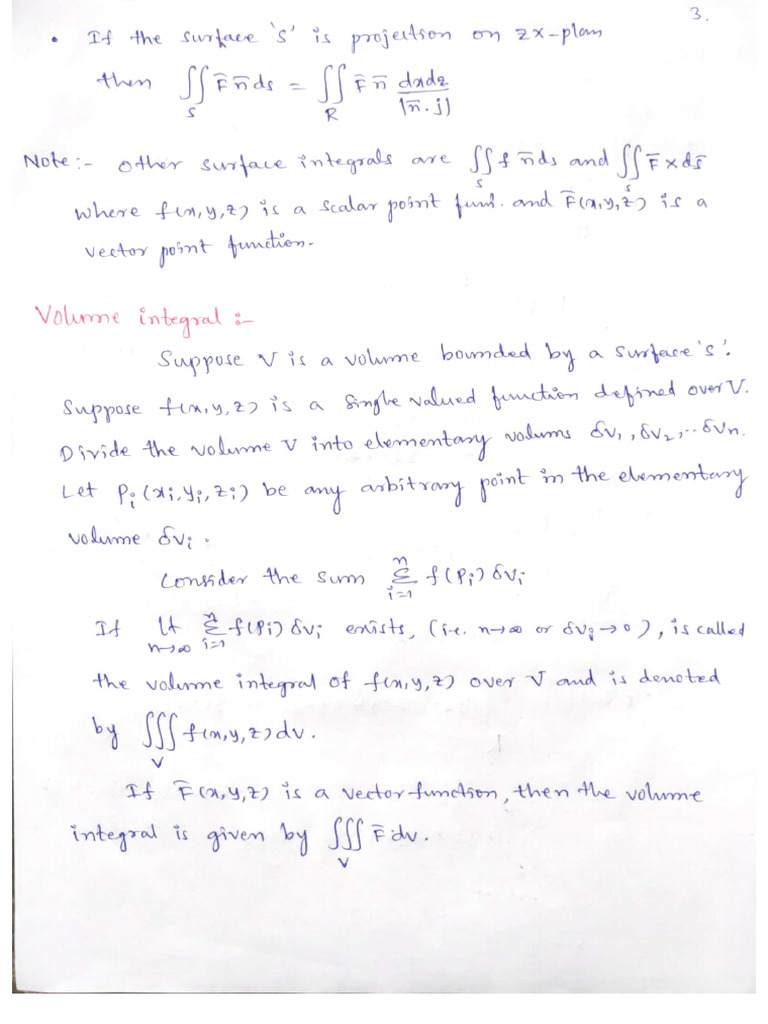 3.
• If the surface 's' is projection on zx-plan
then ∬_S F̄ n̄ ds = ∬_R F̄ n̄ dxdz/|n̄.j|
Note:- other surface integrals are ∬_S f n̄ds and ∬_S F̄ × ds̄
where f(x,y,z) is a scalar point fun. and F̄(x,y,z) is a
vector point function.
Volume integral :-
Suppose V is a volume bounded by a surface 's'.
Suppose f(x,y,z) is a single valued function defined over V.
Divide the volume V into elementary volums δv₁, δv₂, .. δvn.
Let Pᵢ (xᵢ, yᵢ, zᵢ) be any arbitrary point in the elementary
volume δvᵢ.
Consider the sum Σ_{i=1}^{n} f(Pᵢ) δvᵢ
If Lt_{n→∞} Σ_{i=1}^{n} f(Pᵢ) δvᵢ exists, (i.e. n→∞ or δvᵢ→0), is called
the volume integral of f(x,y,z) over V and is denoted
by ∭_V f(x,y,z) dv.
If F̄(x,y,z) is a vector function, then the volume
integral is given by ∭_V F̄ dv.